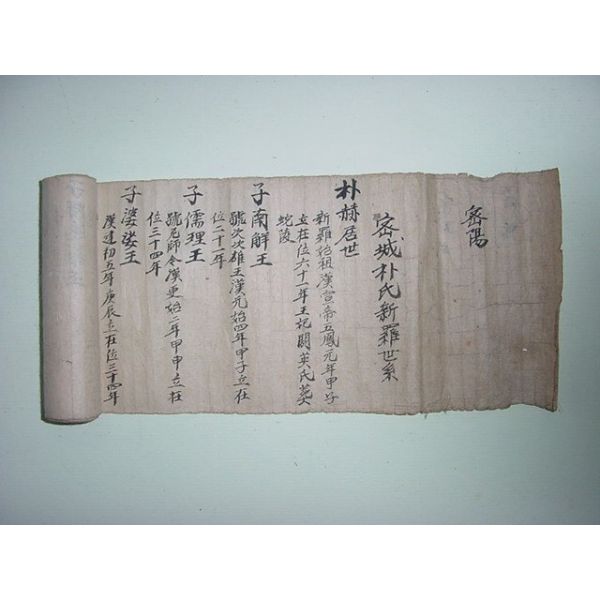 密陽
密城朴氏新羅世系
朴赫居世
新羅始祖漢宣帝五鳳元年甲子
立在位六十一年王妃閼英氏葬
蛇陵
子南解王
號次次雄王漢元始四年甲子立在
位二十一年
子儒理王
號尼師今漢更始二年甲申立在
位三十四年
子婆娑王
漢建初五年庚辰立在位三十四年